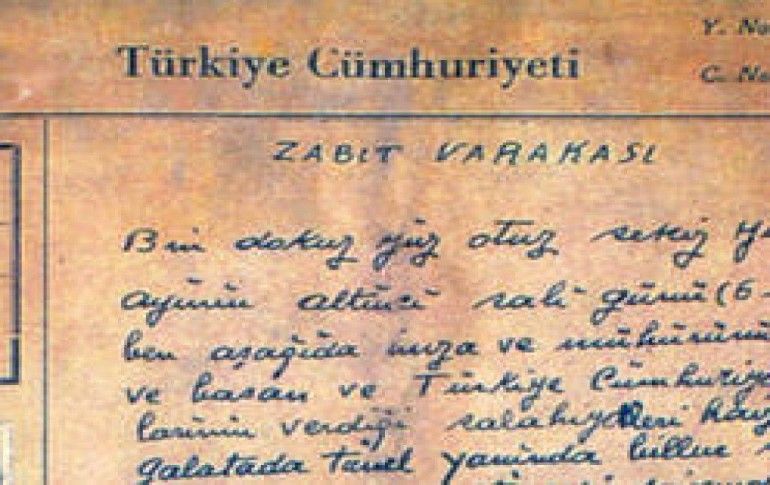 Y. No
Türkiye Cümhuriyeti
C. No
ZABIT VARAKASI
Bin dokuz yüz otuz sekiz
ayının altıncı salı günü (6-
ben aşağıda imza ve mühürünü
ve basan ve Türkiye Cümhuriye
larının verdiği salahiyetleri haiz
galatada tünel yanında